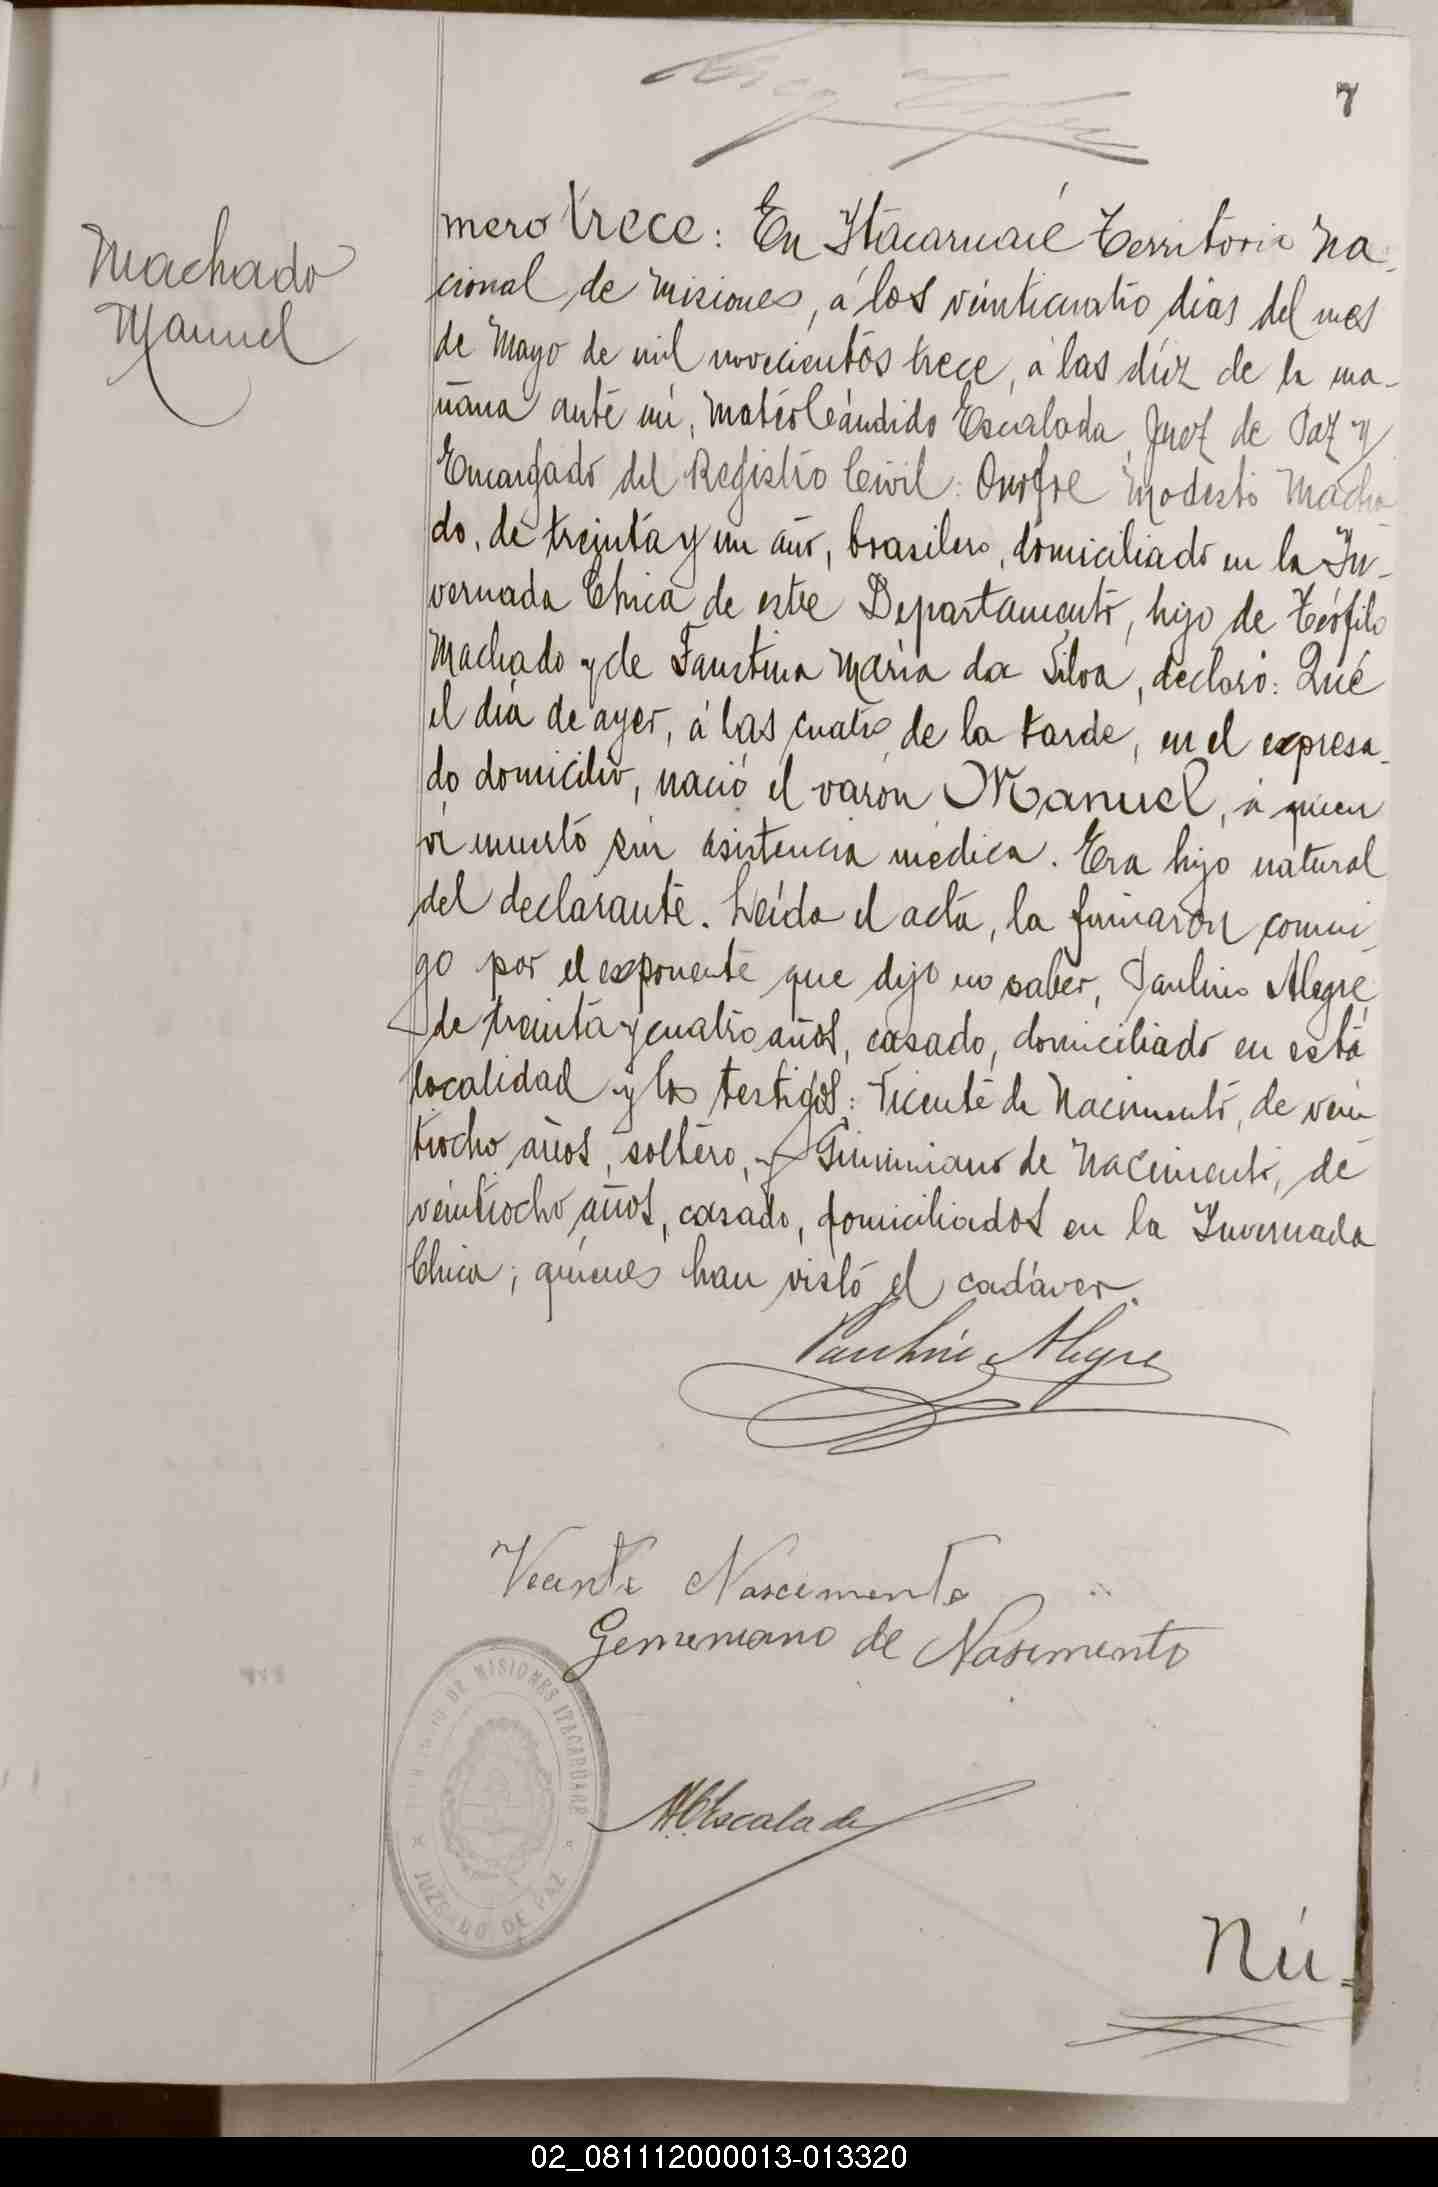 7
Machado
Manuel
mero trece: En Itacaruaré Territorio Na-
cional de Misiones, á los veinticuatro dias del mes
de Mayo de mil novecientos trece, á las diez de la ma-
ñana ante mi, Mateo Cándido Escalada, Juez de Paz y
Encargado del Registro Civil: Onofre Modesto Macha
do, de treinta y un año, brasilero, domiciliado en la In-
vernada Chica de este Departamento, hijo de Teófilo
Machado y de Faustina Maria da Silva, declaró: Qué
el dia de ayer, á las cuatro de la tarde, en el expresa-
do domicilio, nació el varón Manuel, á quien
vi muerto sin asistencia médica. Era hijo natural
del declarante. Leida el acta, la firmaron conmi-
go por el exponente que dijo no saber, Paulino Alegre
de treinta y cuatro años, casado, domiciliado en esta
localidad y los testigos: Vicente de Nacimento, de vein
tiocho años, soltero, y Giminiano de Nacimento, de
veintiocho años, casado, domiciliados en la Invernada
Chica; quienes han visto el cadáver.
Paulino Alegre
Vicente Nascimento
Gememano de Nasimento
DE MISIONES ITACARUARE
JUZGADO DE PAZ
MCEscalada
Nú=
02_081112000013-013320